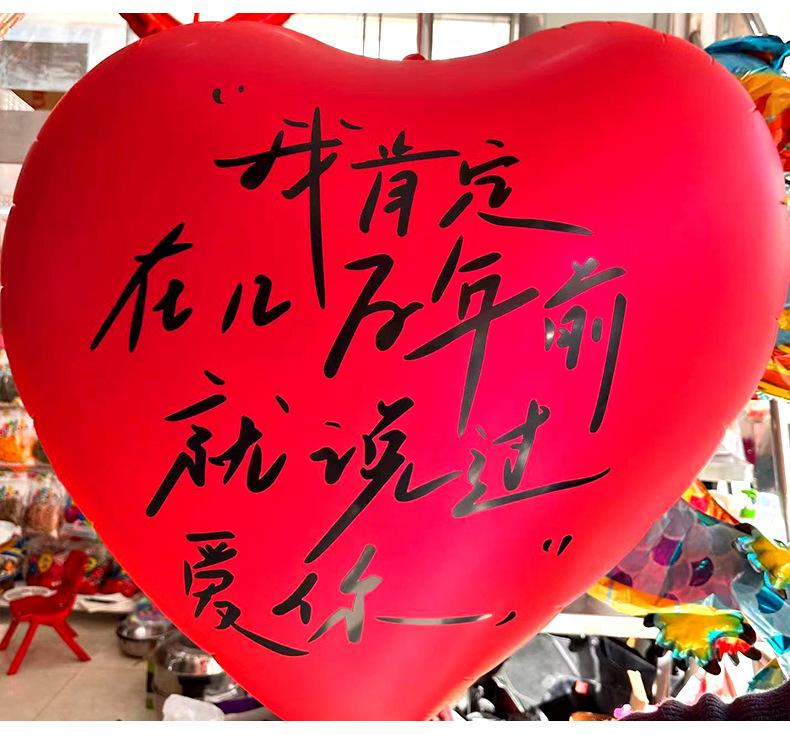 “我肯定
在几百年前
就说过
爱你，”